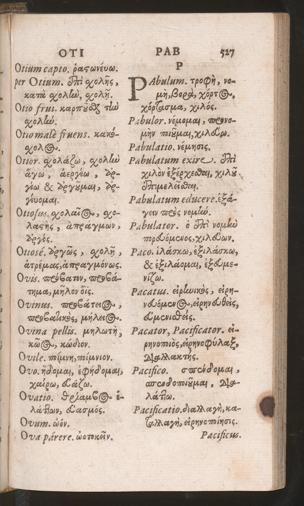 OTI PAB 527
Otium capto. ῥαςωνεύω.
per Otium. ἐπὶ χολῆς,
κατὰ χολὴν, χολῇ.
Otio frui. καρπῦσθ τὴν
χολὴν.
Otio male fruens. κακό-
χολος.
Otior. χολάζω, χολὴν
ἄγω, ἀεργέω,
γέω &
Otiosus. χολαῖος, χο-
λαςὴς, ἀπράγμων,
ἀργός.
Otiosè. ἀργῶς, χολῇ,
ἀτρέμας, ἀπραγμόνως.
Ovis. πρόβατον, προβά-
τιημα, μῆλον ὄϊς.
Ovinus. προβάτειος,
προβατικὸς, μήλειος.
Ovina pellis. μηλωτὴ,
κῶς, κώδιον.
Ovile. πίμνη, πίμνιον.
Ovo. ἥδομαι, ἐφήδομαι,
χαίρω,
Ovatio. θρίαμβος ἐ-
λάτλων,
Ovum. ὠόν.
Ova parere. ὠοτοκεῖν.
P
PAbulum. τροφὴ, νο-
μὴ, βορὰ, χόρτος,
χόρτασμα, χιλός.
Pabulor. νέμομαι, προνο-
μὴν ποιοῦμαι, χιλόω.
Pabulatio. νέμησις.
Pabulatum exire. ἐπὶ
χιλὸν ἐξέρχεσθαι, χιλοῦ
ἐπιμελεῖσθαι.
Pabulatum educere. ἐξά-
γειν πρὸς νομὴν.
Pabulator. ὁ ἐπὶ νομὴν
χιλῶν.
Paco. ἱλάσκω, ἐξιλάσκω,
& ἐξιλάσομαι,
νίζω.
Pacatus. εἰρηνικὸς, εἰρη-
εἰρηνοθεὶς,
Pacator, Pacificator. εἰ-
ρηνοποιὸς, εἰρηνοφύλαξ,
διαλλακτής.
Pacifico. σπένδομαι,
σπονδοποιοῦμαι, διαλ-
λάττω.
Pacificatio. διαλλαγὴ, κα-
ταλλαγὴ, εἰρηνοποίησις.
Pacificus.